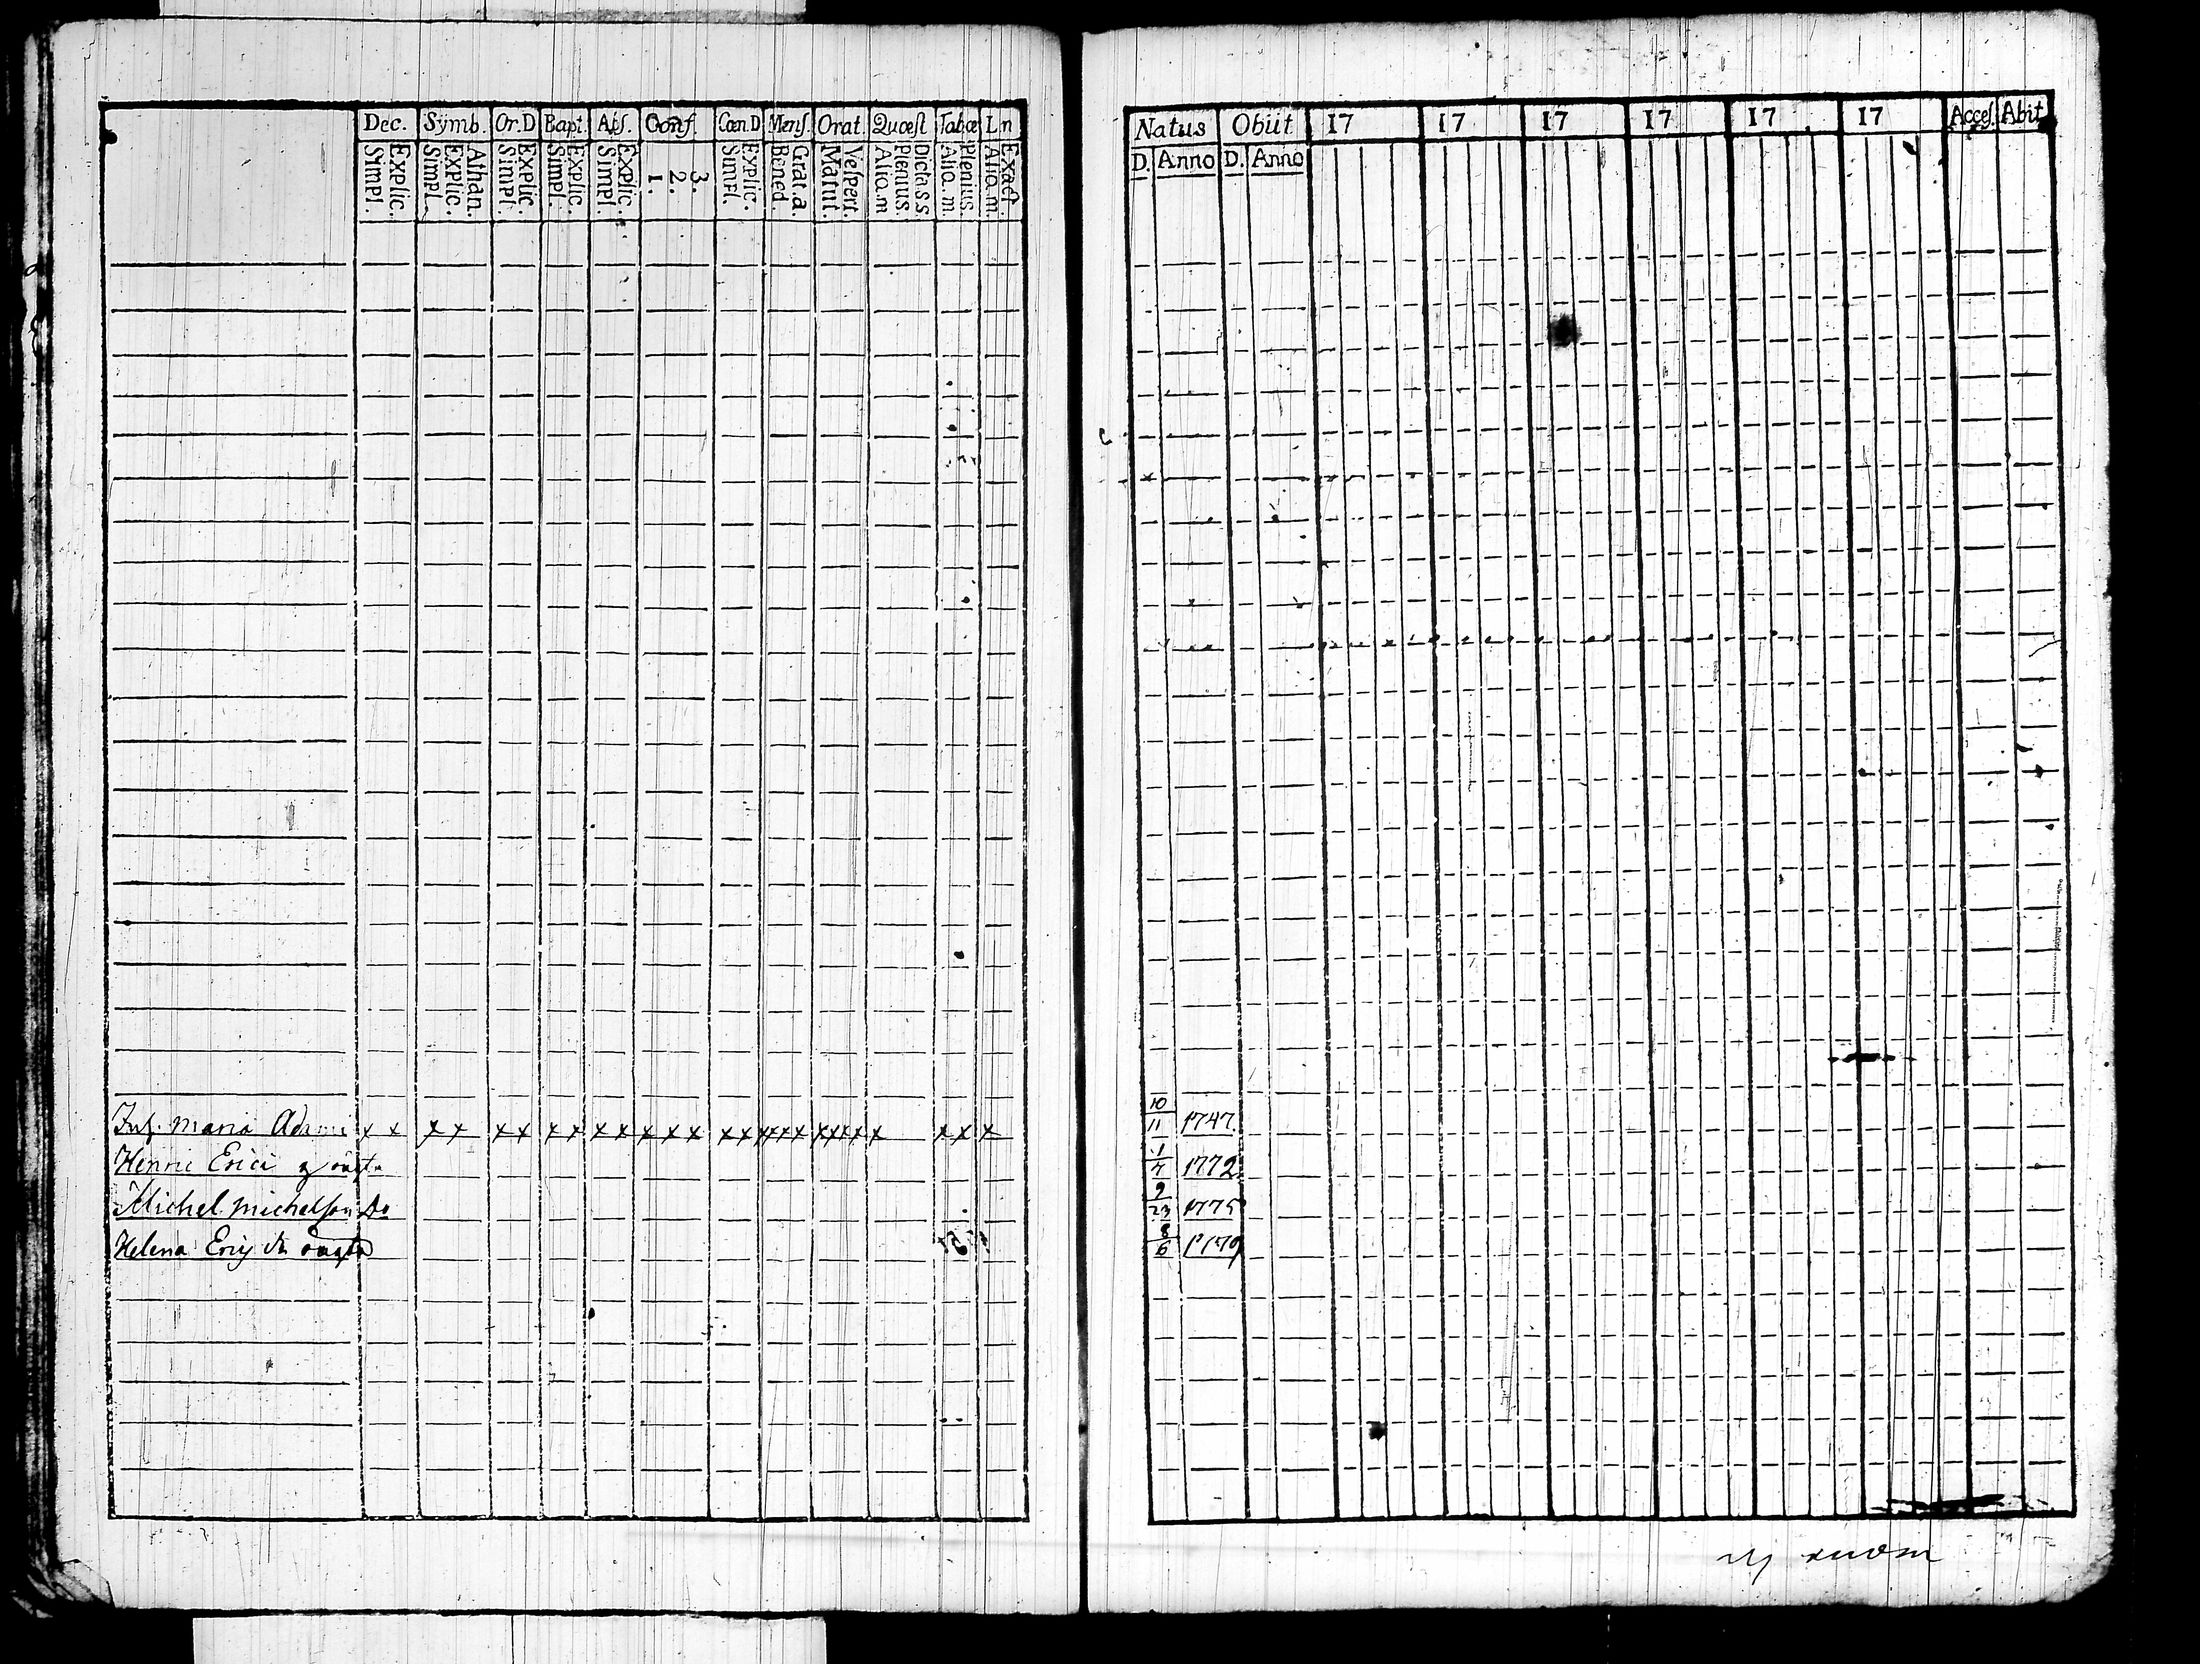 Dec. Symb. Or.D Bapt. Abs. Conf. Cœn.D Mens. Orat. Quæst Tabæ L n
Explic. Simpl. Athan. Explic. Simpl. Explic. Simpl. Explic. Simpl. Explic. Simpl. 3. 2. 1. Explic. Simpl. Grat.a. Bened. Vespert. Matut. Dicta SS Plenius. Aliq.m Plenius. Aliq.m. Exact. Aliq.m.
Inh. Maria Adami x x x x x x x x x x x x x x x x x x x x x x x x x x x
Henric Erici
Michel Michelson Do
Helena Erij
Natus Obiit 17 17 17 17 17 17 Access. Abit
D. Anno D. Anno
10/11 1747.
1/7 1772
9/23 1775
8/6 1779